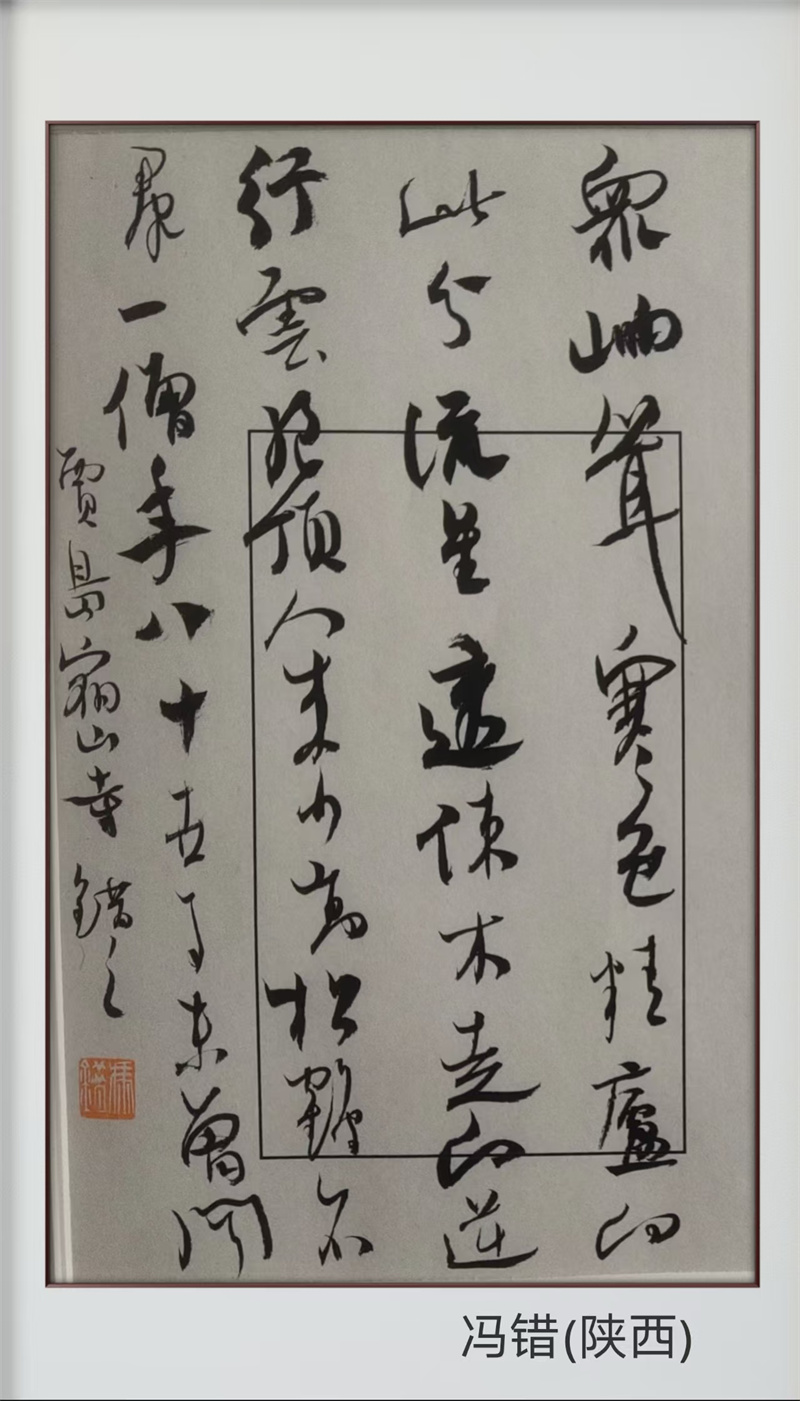 眾岫聳寒色精廬向
此分流星透疎木走月逆
行雲絕頂人來少高松鶴不
羣一僧年八十世事未曾聞
賈島宿山寺 錯之
馮錯
冯错(陕西)